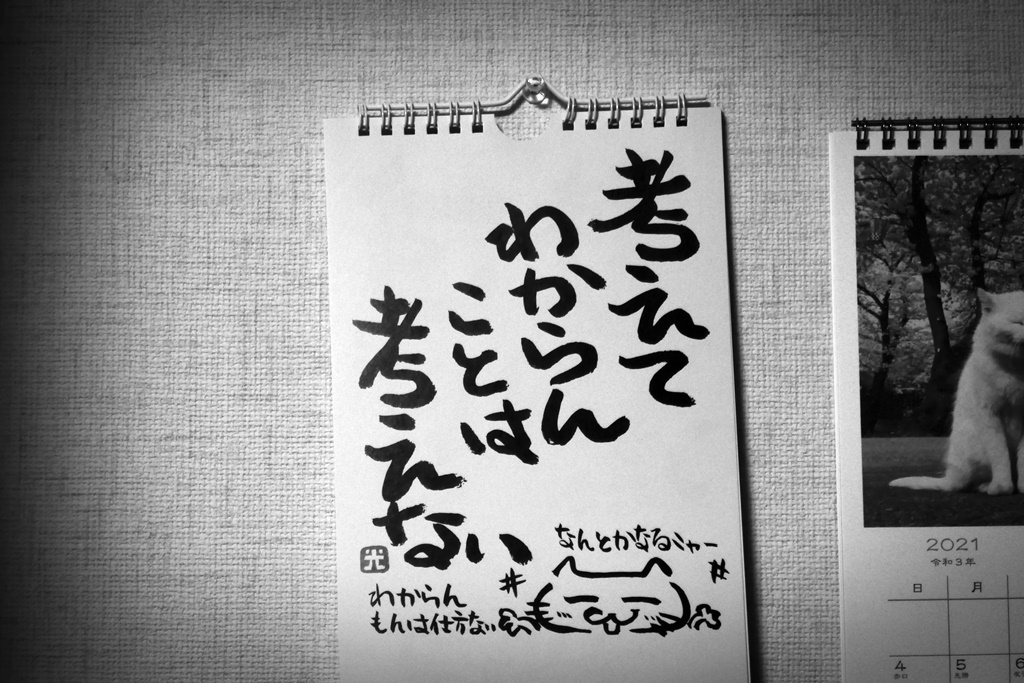 考えて
わからん
ことは
考えない
光
なんとかなるニャー
わからん
もんは仕方ない
2021
令和3年
日 月
4 5 6
赤口 先勝